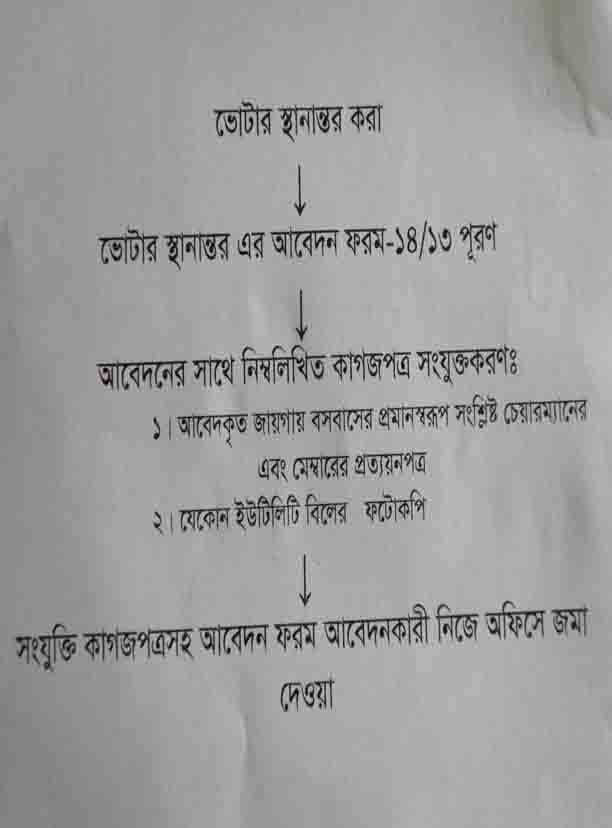 ভোটার স্থানান্তর করা
ভোটার স্থানান্তর এর আবেদন ফরম-১৪/১৩ পূরণ
আবেদনের সাথে নিম্নলিখিত কাগজপত্র সংযুক্তকরণঃ
১। আবেদনকৃত জায়গায় বসবাসের প্রমানস্বরূপ সংশ্লিষ্ট চেয়ারম্যানের
এবং মেম্বারের প্রত্যয়নপত্র
২। যেকোন ইউটিলিটি বিলের ফটোকপি
সংযুক্তি কাগজপত্রসহ আবেদন ফরম আবেদনকারী নিজে অফিসে জমা
দেওয়া